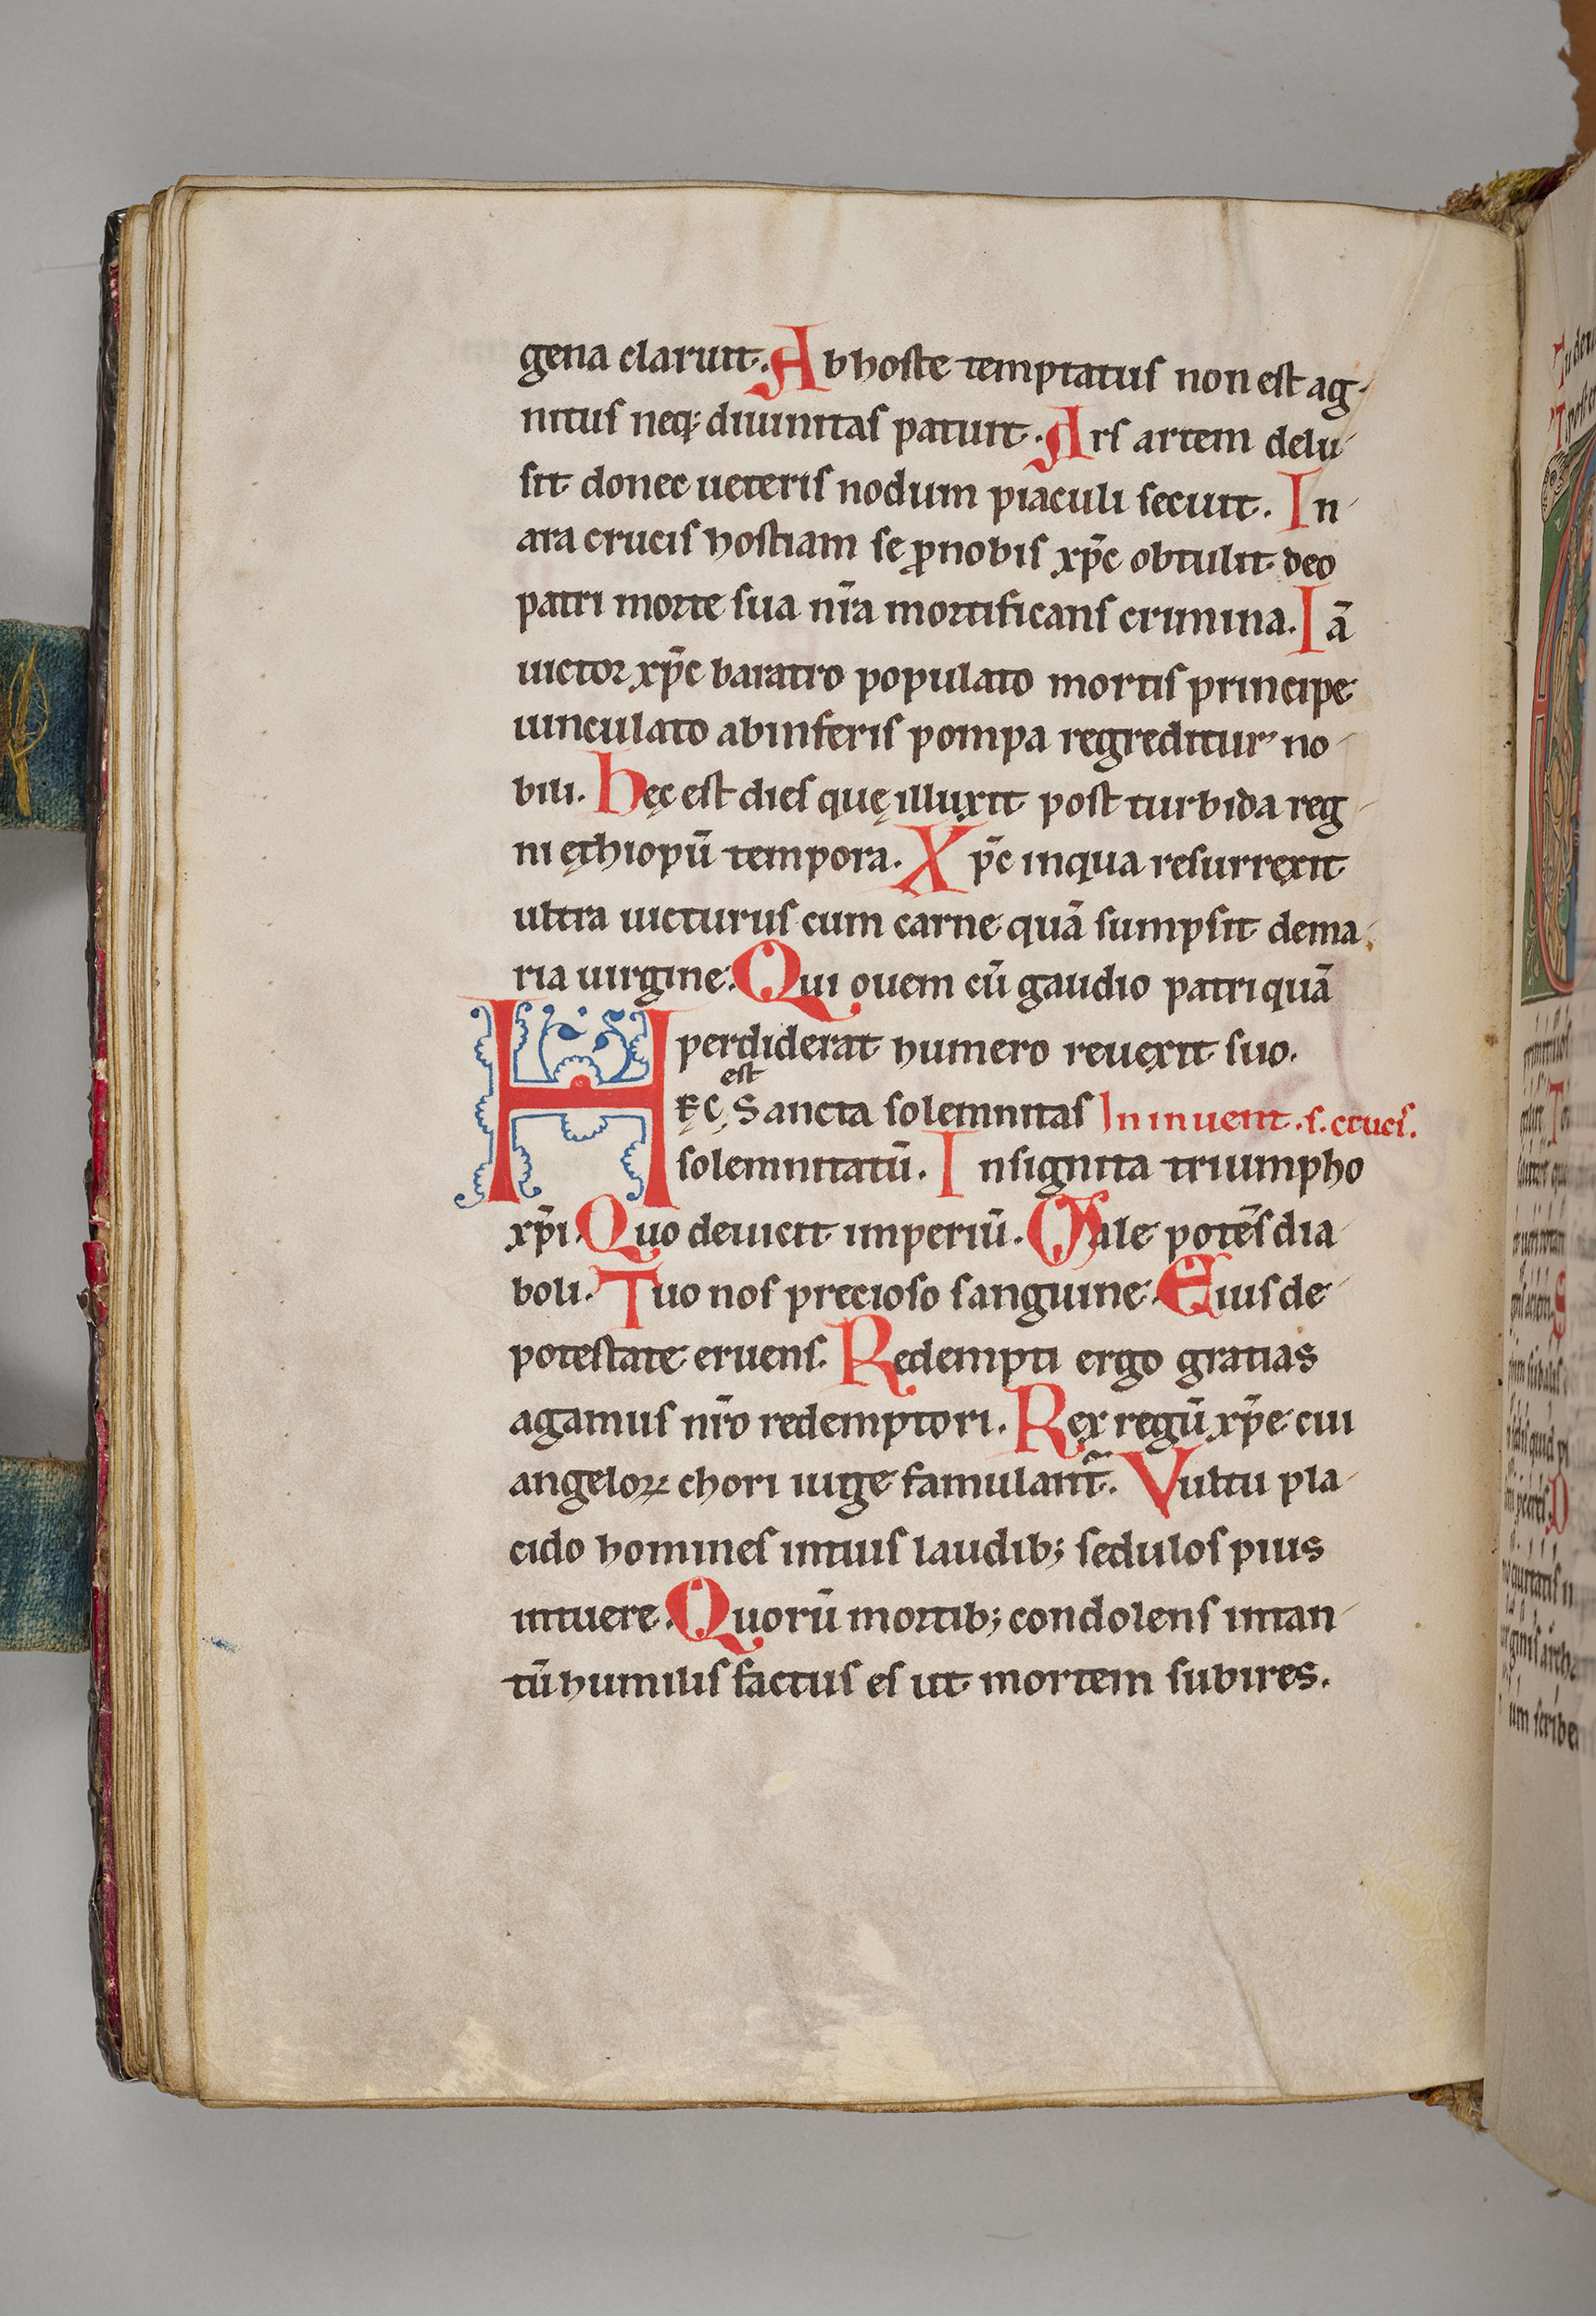 gena claruit. Ab hoste temptatus non est ag-
nitus neq; diuinitas patuit. Ars artem delu-
sit donec ueteris nodum piaculi secuit. In
ara crucis hostiam se ꝓ nobis xp̄c obtulit deo
patri morte sua nr̄a mortificans crimina. Iā
uictor xp̄c baratro populato mortis principe
uinculato ab inferis pompa regreditur no-
bili. Hęc est dies quę illuxit post turbida reg-
ni ęthiopū tempora. Xp̄c in qua resurrexit
ultra uicturus cum carne quā sumpsit de ma-
ria uirgine. Qui ouem cū gaudio patri quā
perdiderat humero reuexit suo.
HĘC est Sancta solemnitas In inuent. s. crucis.
solemnitatū. Insignita triumpho
xp̄i. Quo deuicit imperiū. Male potēs dia-
boli. Tuo nos precioso sanguine. Eius de
potestate eruens. Redempti ergo gratias
agamus nr̄o redemptori. Rex regū xp̄e cui
angeloꝝ chori iuge famulant̄. Vultu pla-
cido homines intuis laudib; sedulos pius
intuere. Quorū mortib; condolens in tan-
tū humilis factus es ut mortem subires.